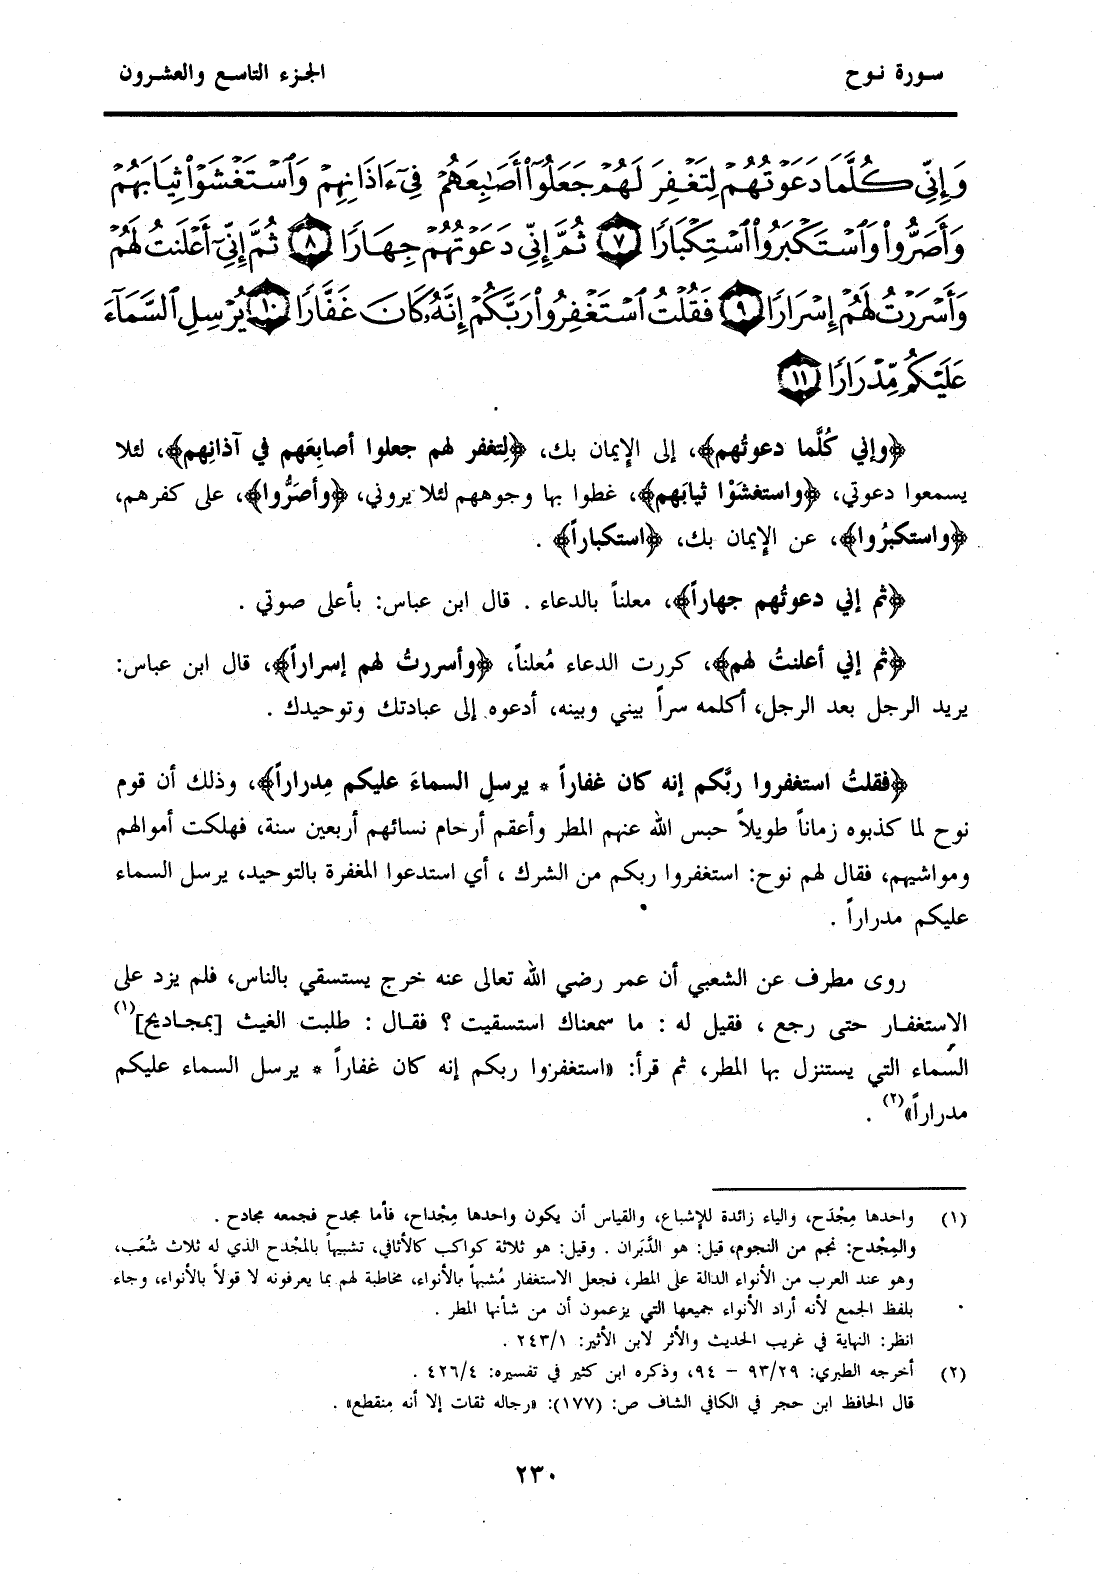 سورة نوح
الجزء التاسع والعشرون
وَإِنِّي كُلَّمَا دَعَوْتُهُمْ لِتَغْفِرَ لَهُمْ جَعَلُوٓا۟ أَصَٰبِعَهُمْ فِىٓ ءَاذَانِهِمْ وَٱسْتَغْشَوْا۟ ثِيَابَهُمْ
وَأَصَرُّوا۟ وَٱسْتَكْبَرُوا۟ ٱسْتِكْبَارًا ٧ ثُمَّ إِنِّي دَعَوْتُهُمْ جِهَارًا ٨ ثُمَّ إِنِّىٓ أَعْلَنتُ لَهُمْ
وَأَسْرَرْتُ لَهُمْ إِسْرَارًا ٩ فَقُلْتُ ٱسْتَغْفِرُوا۟ رَبَّكُمْ إِنَّهُۥ كَانَ غَفَّارًا ١٠ يُرْسِلِ ٱلسَّمَآءَ
عَلَيْكُم مِّدْرَارًا ١١
﴿وإني كُلَّما دعوتُهم﴾، إلى الإيمان بك، ﴿لِتغفر لهم جعلوا أصابِعَهم في آذانِهم﴾، لئلا
يسمعوا دعوتي، ﴿واستغشَوْا ثيابَهم﴾، غطوا بها وجوههم لئلا يروني، ﴿وأصَرُّوا﴾، على كفرهم،
﴿واستكبرُوا﴾، عن الإيمان بك، ﴿استكباراً﴾ .
﴿ثم إني دعوتُهم جهاراً﴾، معلناً بالدعاء . قال ابن عباس: بأعلى صوتي .
﴿ثم إني أعلنتُ لهم﴾، كررت الدعاء مُعلناً، ﴿وأسررتُ لهم إسراراً﴾، قال ابن عباس:
يريد الرجل بعد الرجل، أكلمه سراً بيني وبينه، أدعوه إلى عبادتك وتوحيدك .
﴿فقلتُ استغفروا ربَّكم إنه كان غفاراً * يرسلِ السماءَ عليكم مِدراراً﴾، وذلك أن قوم
نوح لما كذبوه زماناً طويلاً حبس الله عنهم المطر وأعقم أرحام نسائهم أربعين سنة، فهلكت أموالهم
ومواشيهم، فقال لهم نوح: استغفروا ربكم من الشرك ، أي استدعوا المغفرة بالتوحيد، يرسل السماء
عليكم مدراراً .
روى مطرف عن الشعبي أن عمر رضي الله تعالى عنه خرج يستسقي بالناس، فلم يزد على
الاستغفار حتى رجع ، فقيل له : ما سمعناك استسقيت ؟ فقال : طلبت الغيث [بمجاديح](١)
السماء التي يستنزل بها المطر، ثم قرأ: «استغفروا ربكم إنه كان غفاراً * يرسل السماء عليكم
مدراراً»(٢) .
(١) واحدها مِجْدَح، والياء زائدة للإشباع، والقياس أن يكون واحدها مِجْداح، فأما مجدح فجمعه مجادح .
والمِجْدح: نجم من النجوم، قيل: هو الدَّبَران . وقيل: هو ثلاثة كواكب كالأثافي، تشبيهاً بالمجْدح الذي له ثلاث شُعَب،
وهو عند العرب من الأنواء الدالة على المطر، فجعل الاستغفار مُشبهاً بالأنواء، مخاطبة لهم بما يعرفونه لا قولاً بالأنواء، وجاء
بلفظ الجمع لأنه أراد الأنواء جميعها التي يزعمون أن من شأنها المطر .
انظر: النهاية في غريب الحديث والأثر لابن الأثير: ٢٤٣/١ .
(٢) أخرجه الطبري: ٩٣/٢٩ – ٩٤، وذكره ابن كثير في تفسيره: ٤٢٦/٤ .
قال الحافظ ابن حجر في الكافي الشاف ص: (١٧٧): «رجاله ثقات إلا أنه منقطع» .
٢٣٠